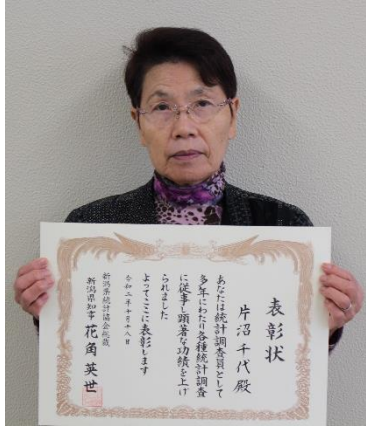 表彰状
片沼千代殿
あなたは統計調査員として
多年にわたり各種統計調査
に従事し顕著な功績を上げ
られました
よってここに表彰します
令和二年十月十八日
新潟県統計協会総裁
新潟県知事 花角英世